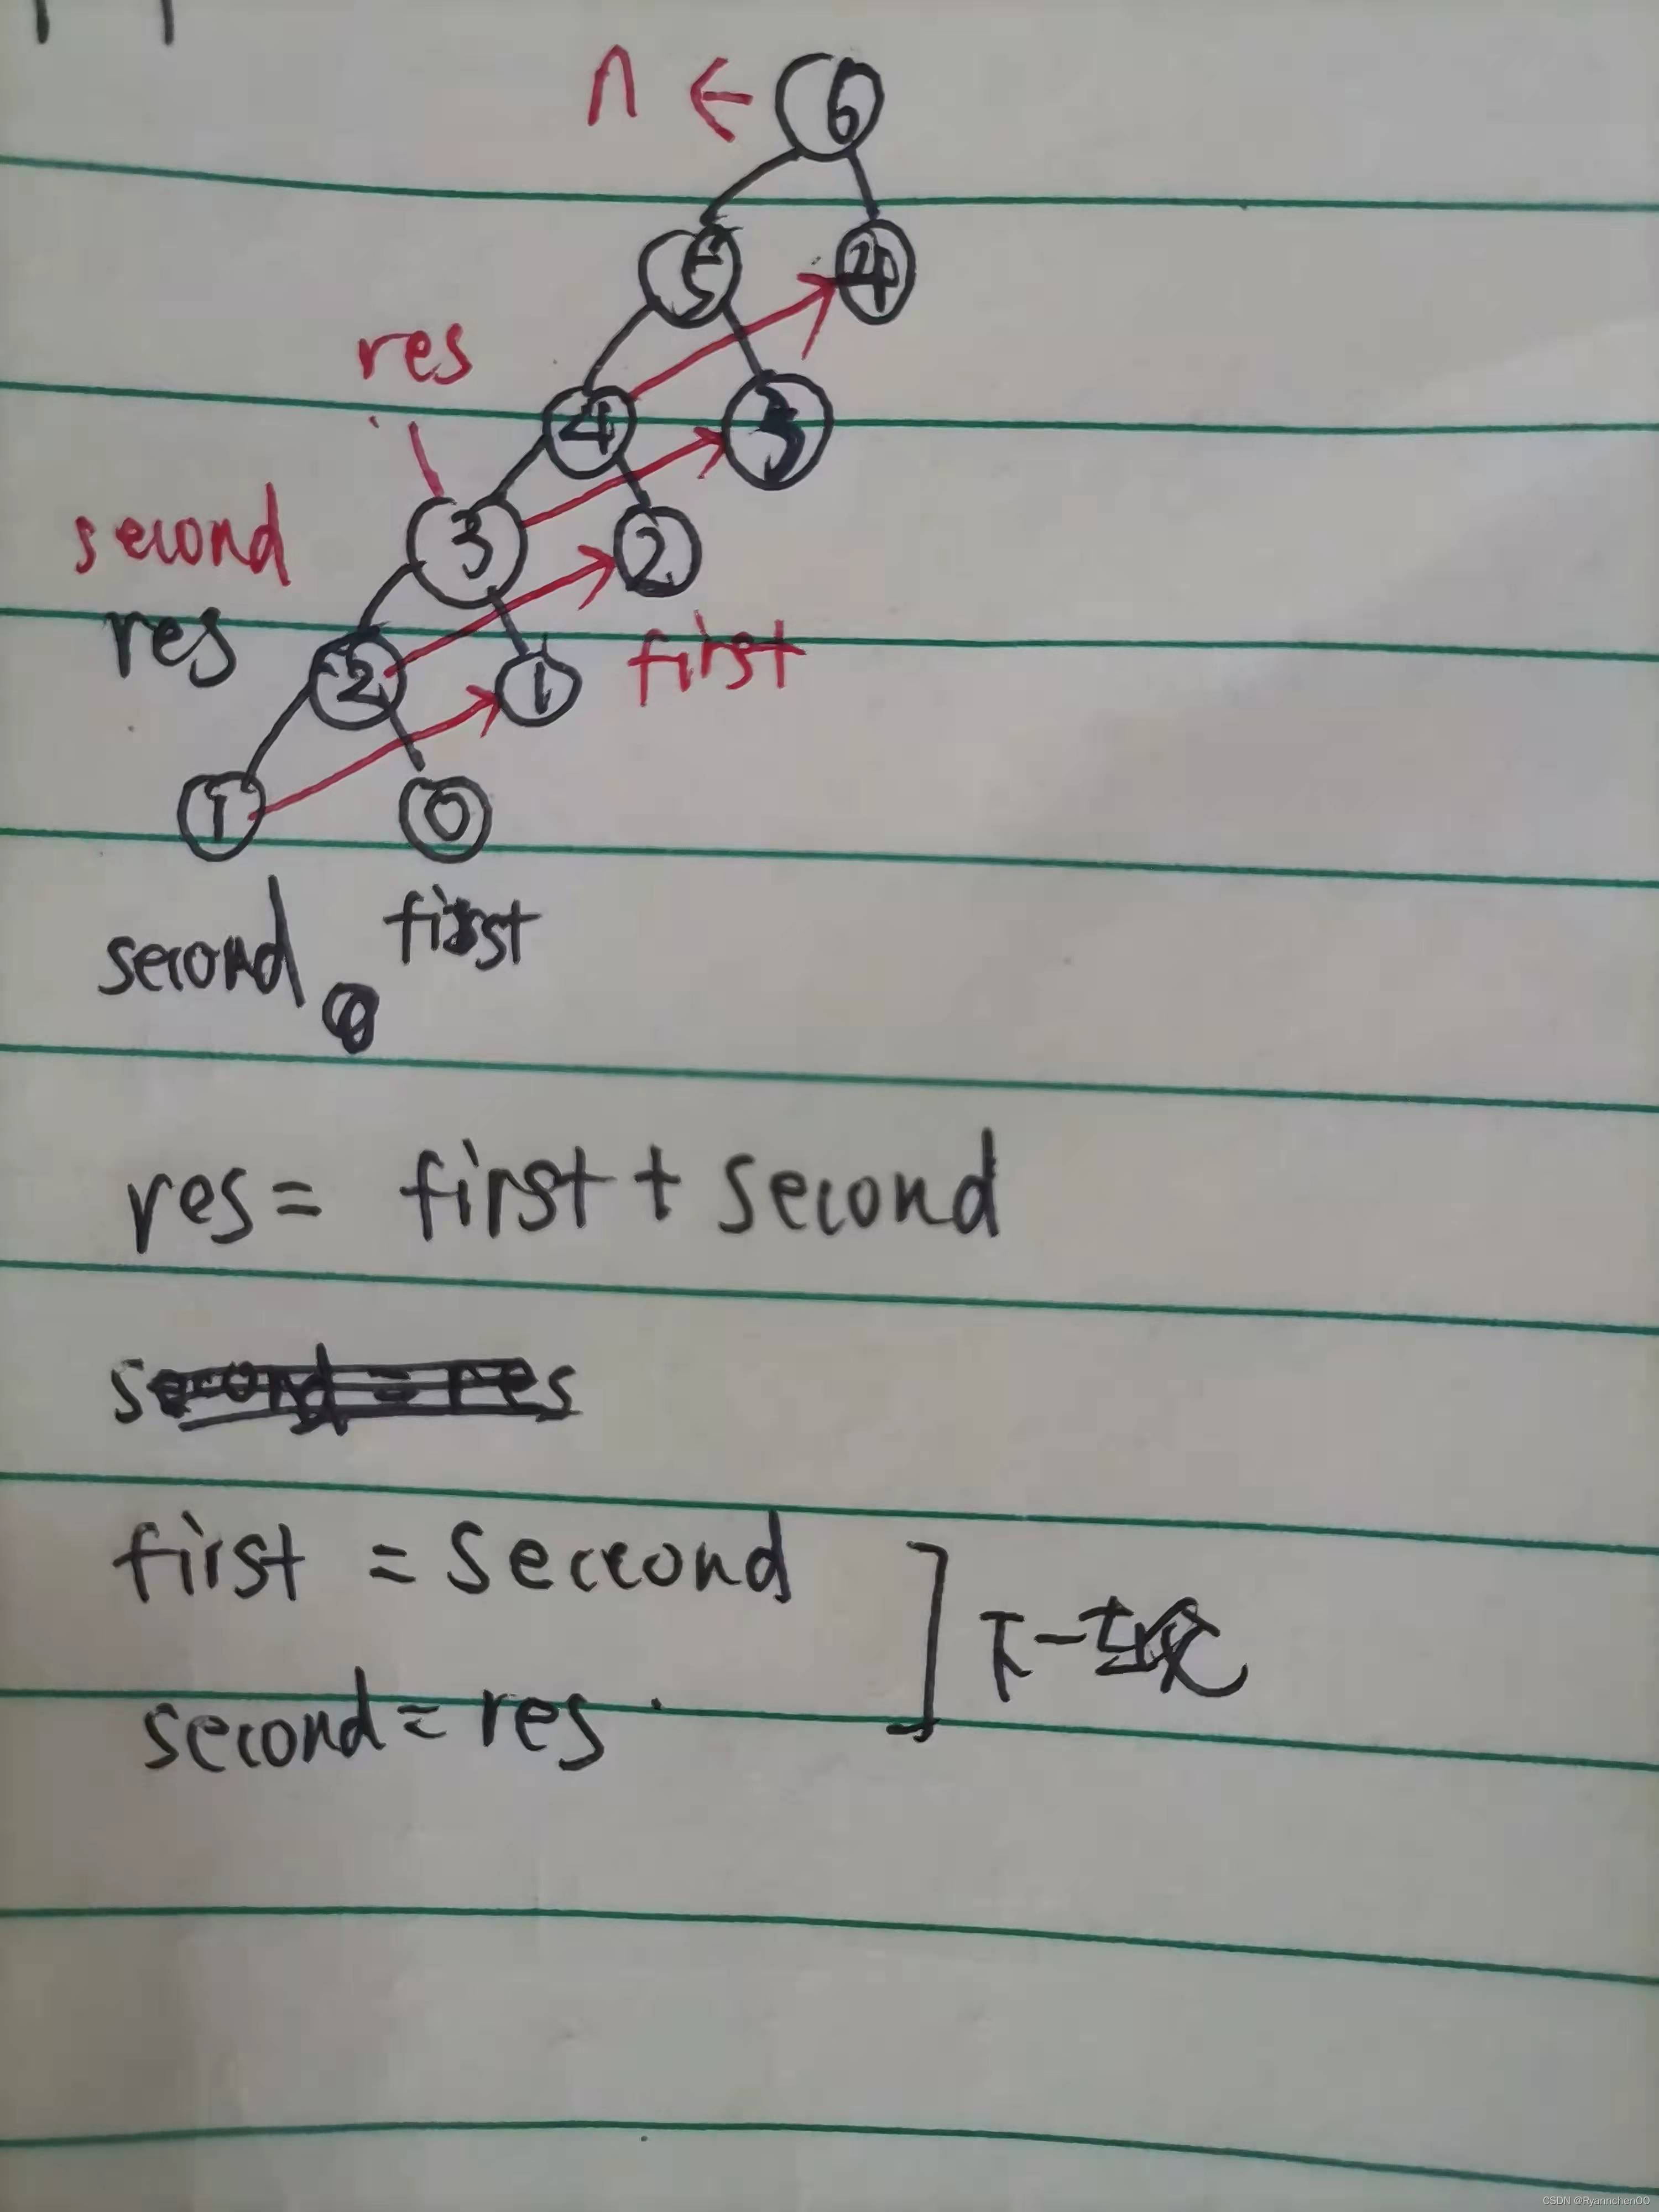 n ← 6
5 4
res
4 3
second
3 2
res
2 1 first
1 0
second first
res = first + second
second = res
first = seccond
second = res
下一轮
CSDN @RyannchenOO